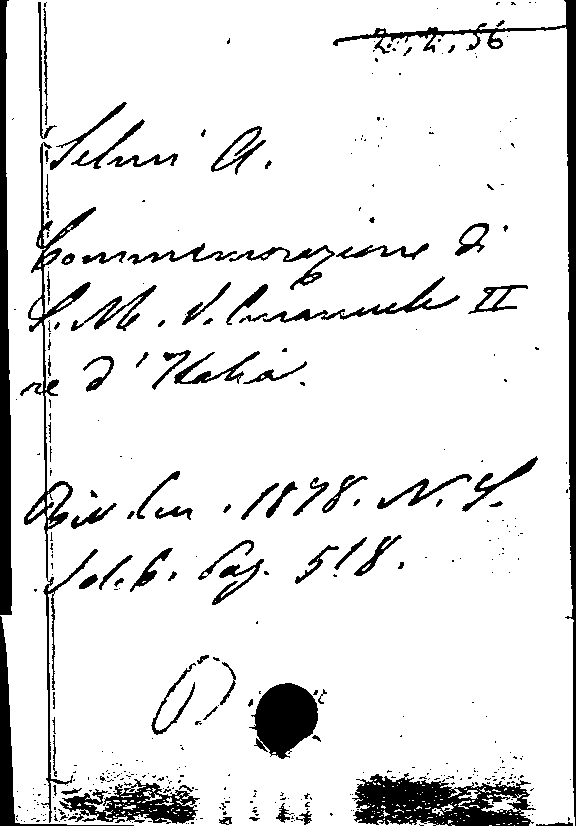 2.,2,56
Selmi A.
Commemorazione di
S. M. V. Emanuele II
re d'Italia.
Riv. Eur. 1878. N. S.
Vol. 6. Pag. 518.